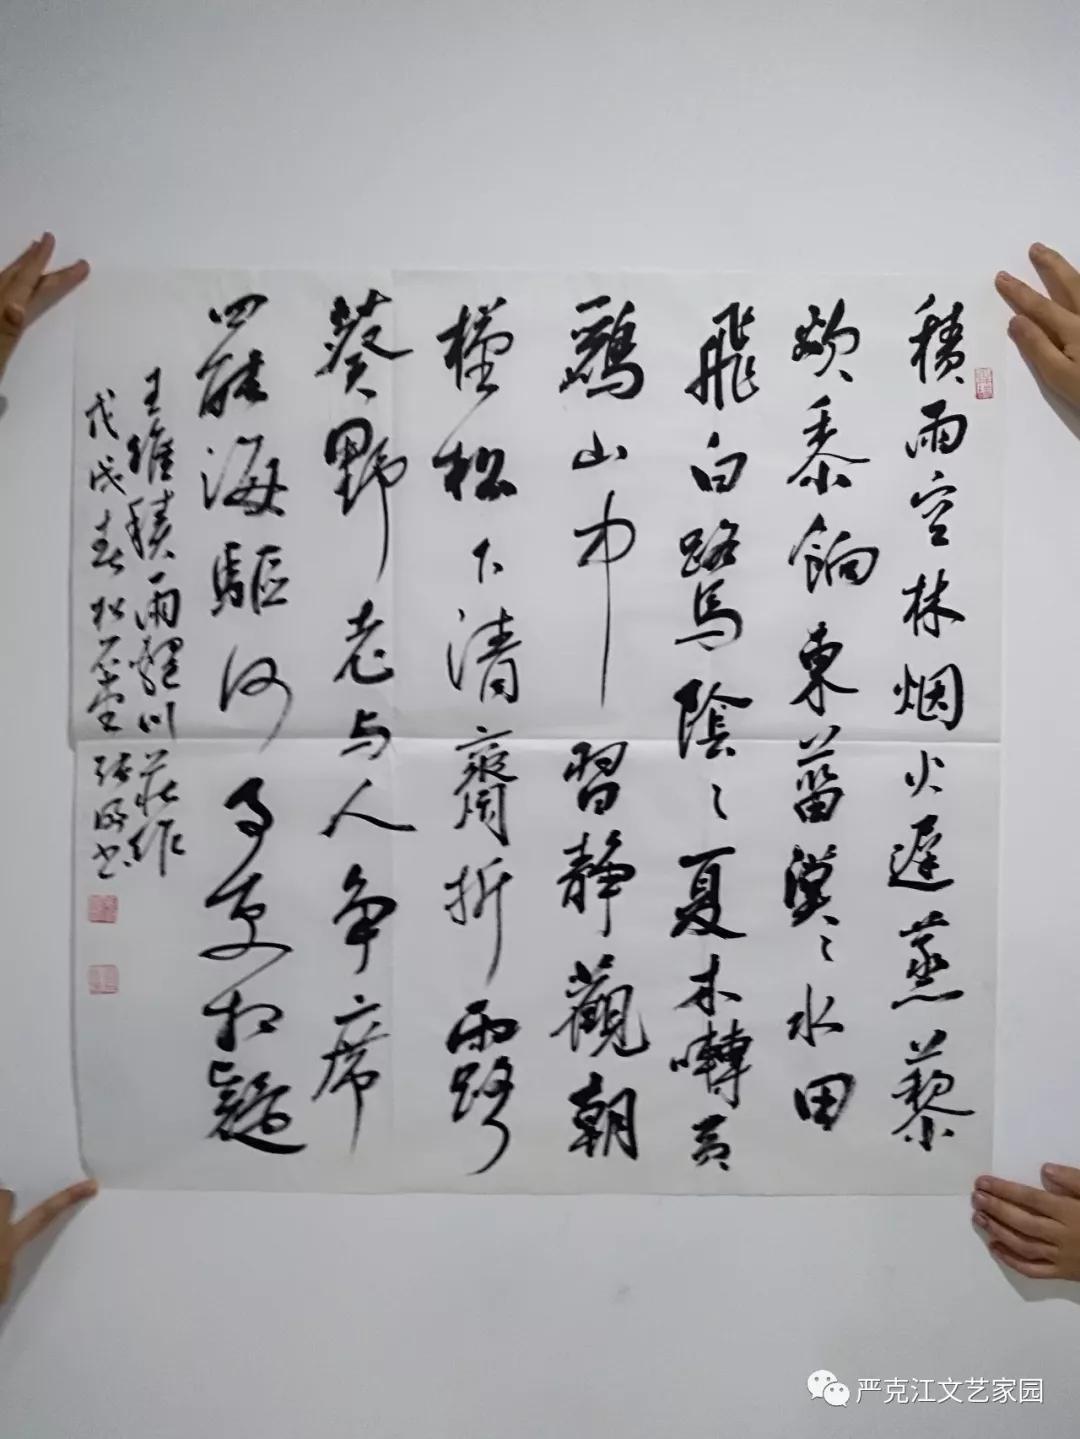 積雨空林烟火遲蒸藜
炊黍餉東菑漠〻水田
飛白鷺陰〻夏木囀黄
鸝山中習靜觀朝
槿松下清齋折露
葵野老与人争席
罷海鷗何事更相疑
王維積雨輞川莊作
戊戌春松石堂书
严克江文艺家园